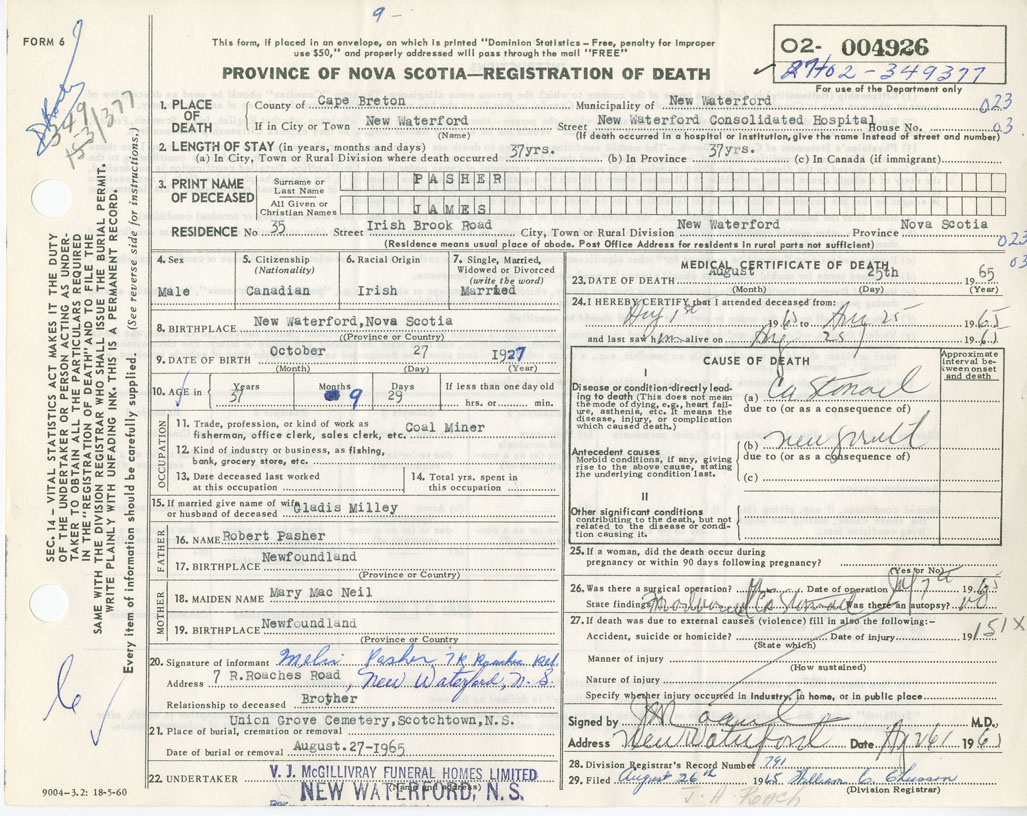 9-
FORM 6
This form, if placed in an envelope, on which is printed "Dominion Statistics – Free, penalty for improper
use $50," and properly addressed will pass through the mail "FREE"
PROVINCE OF NOVA SCOTIA—REGISTRATION OF DEATH
O2- 004926
02-349377
For use of the Department only
349
153/377
SEC. 14 – VITAL STATISTICS ACT MAKES IT THE DUTY
OF THE UNDERTAKER OR PERSON ACTING AS UNDER-
TAKER TO OBTAIN ALL THE PARTICULARS REQUIRED
IN THE "REGISTRATION OF DEATH" AND TO FILE THE
SAME WITH THE DIVISION REGISTRAR WHO SHALL ISSUE THE BURIAL PERMIT.
WRITE PLAINLY WITH UNFADING INK. THIS IS A PERMANENT RECORD.
Every item of information should be carefully supplied. (See reverse side for instructions.)
1. PLACE OF DEATH
County of Cape Breton Municipality of New Waterford 023
If in City or Town New Waterford Street New Waterford Consolidated Hospital House No. 03
(Name) (If death occurred in a hospital or institution, give the name instead of street and number)
2. LENGTH OF STAY (in years, months and days)
(a) In City, Town or Rural Division where death occurred 37yrs. (b) In Province 37yrs. (c) In Canada (if immigrant)
3. PRINT NAME OF DECEASED
Surname or Last Name PASHER
All Given or Christian Names JAMES
RESIDENCE No 35 Street Irish Brook Road City, Town or Rural Division New Waterford Province Nova Scotia
(Residence means usual place of abode. Post Office Address for residents in rural parts not sufficient)
023
03
4. Sex
Male
5. Citizenship
(Nationality)
Canadian
6. Racial Origin
Irish
7. Single, Married,
Widowed or Divorced
(write the word)
Married
8. BIRTHPLACE New Waterford,Nova Scotia
(Province or Country)
9. DATE OF BIRTH October 27 1927
(Month) (Day) (Year)
10. AGE in Years Months Days If less than one day old
37 9 29 hrs. or min.
OCCUPATION
11. Trade, profession, or kind of work as
fisherman, office clerk, sales clerk, etc. Coal Miner
12. Kind of industry or business, as fishing,
bank, grocery store, etc.
13. Date deceased last worked
at this occupation
14. Total yrs. spent in
this occupation
15. If married give name of wife
or husband of deceased Gladis Milley
FATHER
16. NAME Robert Pasher
17. BIRTHPLACE Newfoundland
(Province or Country)
MOTHER
18. MAIDEN NAME Mary Mac Neil
19. BIRTHPLACE Newfoundland
(Province or Country)
20. Signature of informant Melvin Pasher 7 R Roaches Rd.
Address 7 R.Roaches Road, New Waterford, N.S.
Relationship to deceased Brother
Union Grove Cemetery,Scotchtown,N.S.
21. Place of burial, cremation or removal
Date of burial or removal August.27-1965
22. UNDERTAKER V. J. McGILLIVRAY FUNERAL HOMES LIMITED
(Name and address)
NEW WATERFORD, N. S.
9004-3.2: 18-5-60
MEDICAL CERTIFICATE OF DEATH
23. DATE OF DEATH August 25th 1965
(Month) (Day) (Year)
24. I HEREBY CERTIFY that I attended deceased from:
1965 to Aug 25 1965
and last saw him alive on Aug 25 1965
CAUSE OF DEATH
Approximate
interval be-
tween onset
and death
I
Disease or condition directly lead-
ing to death (This does not mean
the mode of dying, e.g., heart fail-
ure, asthenia, etc. It means the
disease, injury, or complication
which caused death.)
(a) Ca Stomach
due to (or as a consequence of)
Antecedent causes
Morbid conditions, if any, giving
rise to the above cause, stating
the underlying condition last.
(b) new growth
due to (or as a consequence of)
(c)
II
Other significant conditions
contributing to the death, but not
related to the disease or condi-
tion causing it.
25. If a woman, did the death occur during
pregnancy or within 90 days following pregnancy?
(Yes or No)
26. Was there a surgical operation? Date of operation 1965
State findings Ca Stomach Was there an autopsy? no
27. If death was due to external causes (violence) fill in also the following:-
151X
Accident, suicide or homicide? Date of injury 19
(State which)
Manner of injury
(How sustained)
Nature of injury
Specify whether injury occurred in industry, in home, or in public place
Signed by M.D.
Address New Waterford Date 1965
28. Division Registrar's Record Number 791
29. Filed August 26th 1965 William C.
(Division Registrar)
J. H. Roach